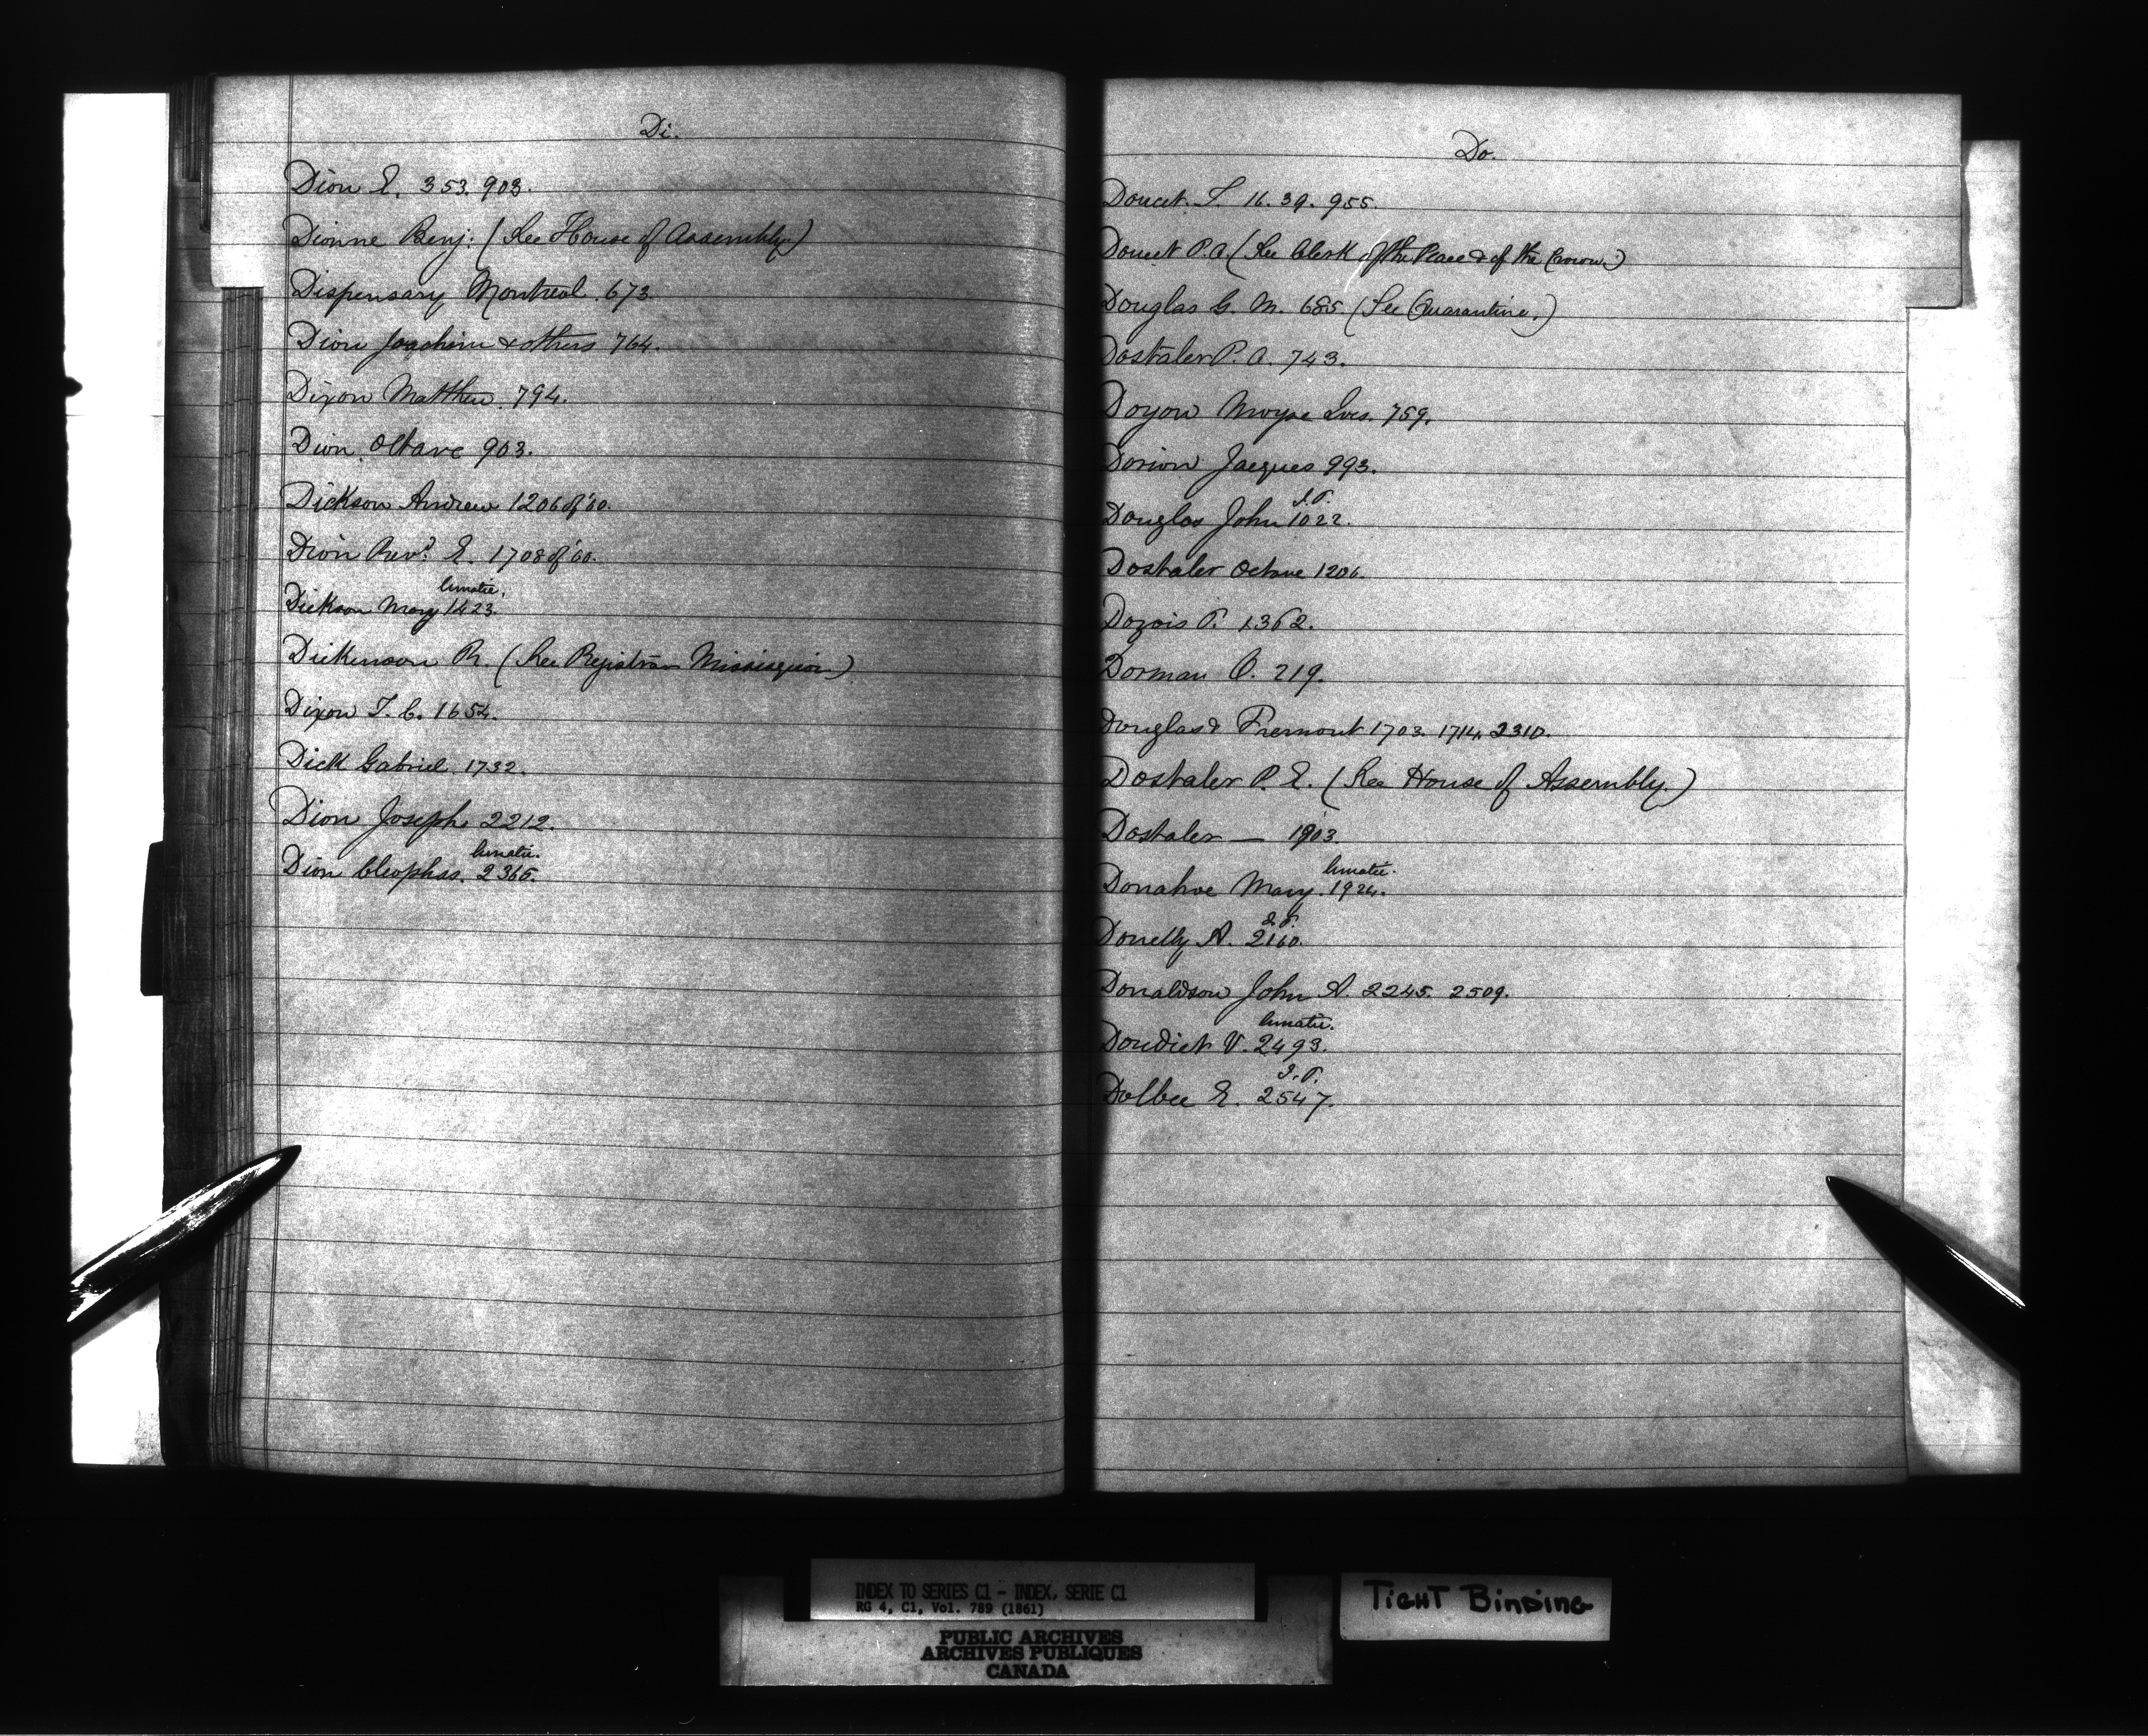 Di.
Dion E. 353. 903.
Dionne Benj: (See House of Assembly)
Dispensary Montreal. 673
Dion Joachim & others 764.
Dixon Matthew. 794.
Dion Octave 903.
Dickson Andrew 1206 of '60.
Dion Revd. E. 1708 of '60.
lunatic.
Dickson Mary 1423.
Dickinson R. (See Registrar Missisquoi)
Dixon T. C. 1654.
Dick Gabriel. 1732.
Dion Joseph. 2212.
lunatic.
Dion Cleophas. 2365.
Do.
Doucet T. 16. 39. 955.
Doucet P. A. (See Clerk of the Peace & of the Crown.)
Douglas G. M. 685. (See Quarantine.)
Dostaler P. A. 743.
Doyon Moyse 759.
Dorion Jacques 993.
J.P.
Douglas John 1022.
Dostaler Octave 1206.
Dozois P. 1362.
Dorman O. 219.
Douglas & Fremont 1703. 1714. 2310.
Dostaler P. E. (See House of Assembly.)
Dostaler — 1903.
lunatic.
Donahoe Mary. 1924.
J.P.
Donelly A. 2160.
Donaldson John A. 2245. 2509.
lunatic.
Doudiet V. 2493.
J.P.
Dolbee E. 2547.
INDEX TO SERIES C1 - INDEX, SERIE C1
RG 4, C1, Vol. 789 (1861)
PUBLIC ARCHIVES
ARCHIVES PUBLIQUES
CANADA
TIGHT BINDING